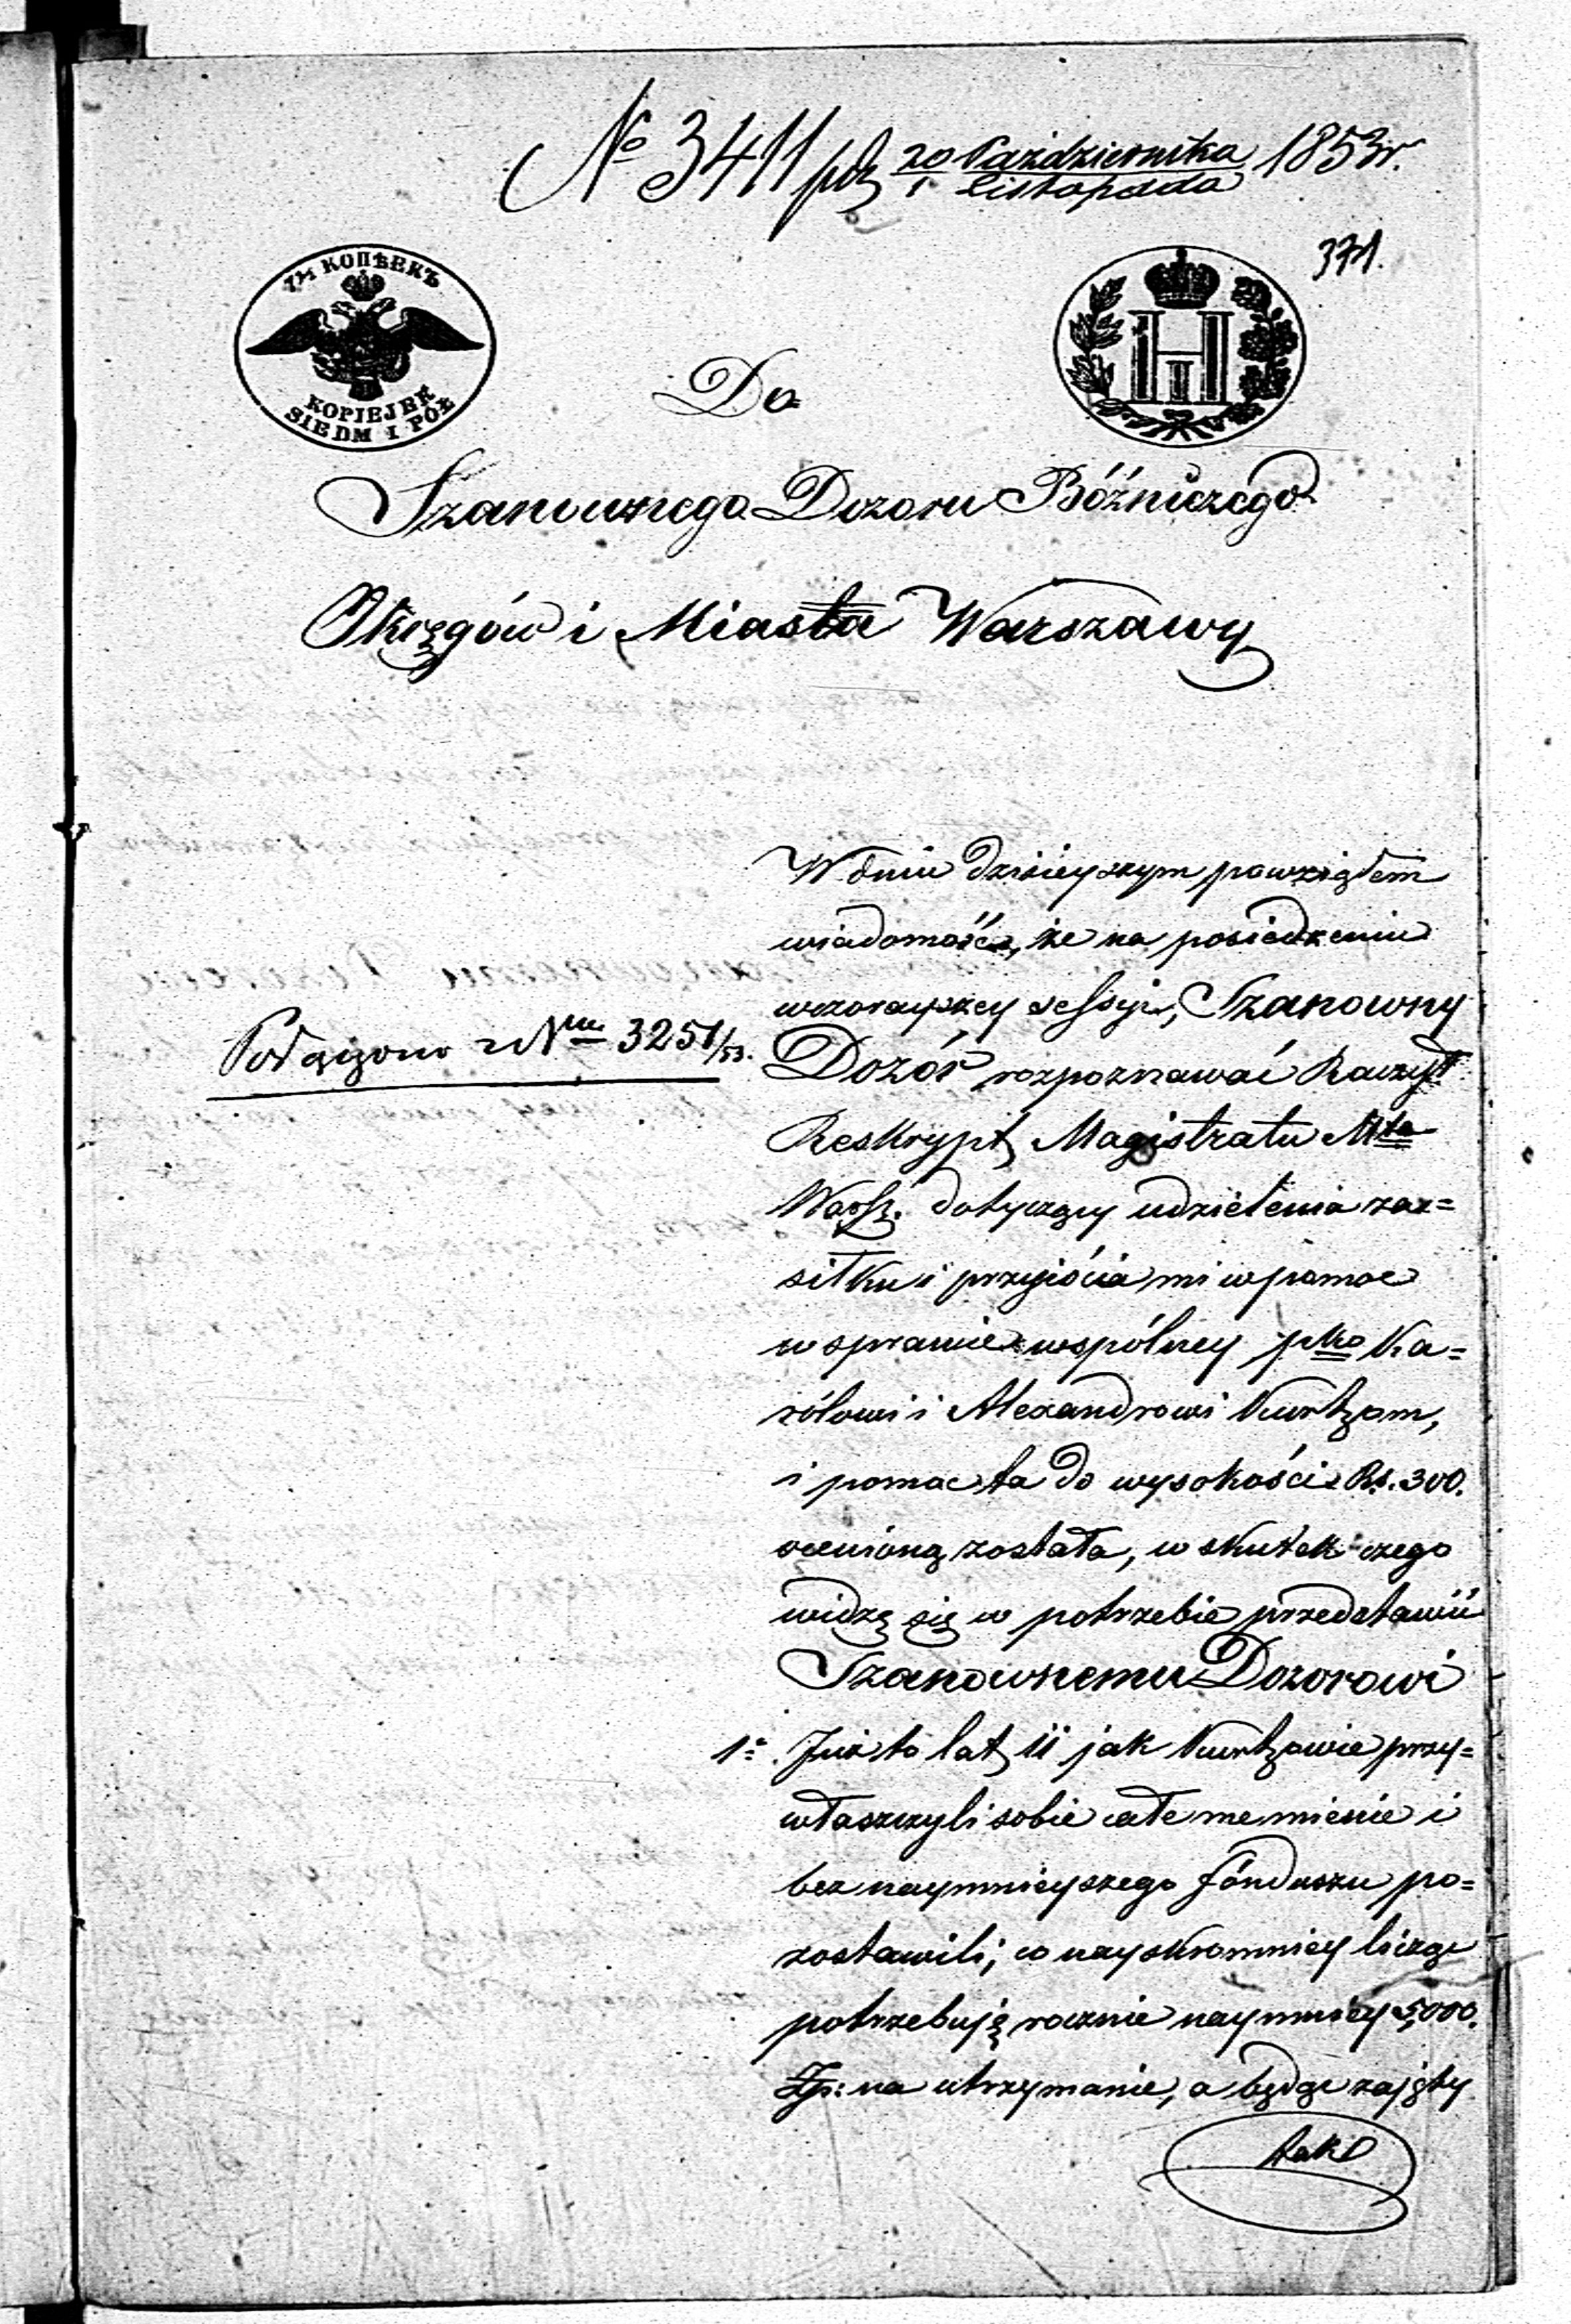 № 3411 pdz 20 Października / 1 Listopada 1853 r.
371.
7½ КОПѢЕКЪ
KOPIEJEK
SIEDM I PÓŁ
Do
Szanownego Dozoru Bóżniczego
Okręgów i Miasta Warszawy
W dniu dzisieyszym powziąłem
wiadomość, że na posiedzeniu
wczorayszey sessyi, Szanowny
Połączono z Nrem 3251/53.
Dozór rozpoznawać Raczył
Reskrypt Magistratu Mta
Warsz. dotyczący udzielenia za=
siłku i przyjścia mi w pomoc
w sprawie wspólney pko Ka=
rólowi i Alexandrowi Kurtzom,
i pomoc ta do wysokości Rs. 300.
ocenioną została, w skutek czego
widzę się w potrzebie przedstawić
Szanownemu Dozorowi
1o Już to lat 11 jak Kurtzowie przy=
właszczyli sobie całe me mienie i
bez naymnieyszego fónduszu po=
zostawili; co nayskromniey licząc
potrzebuję rocznie naymniey 5,000.
Zp: na utrzymanie, a będąc zajęty
tak